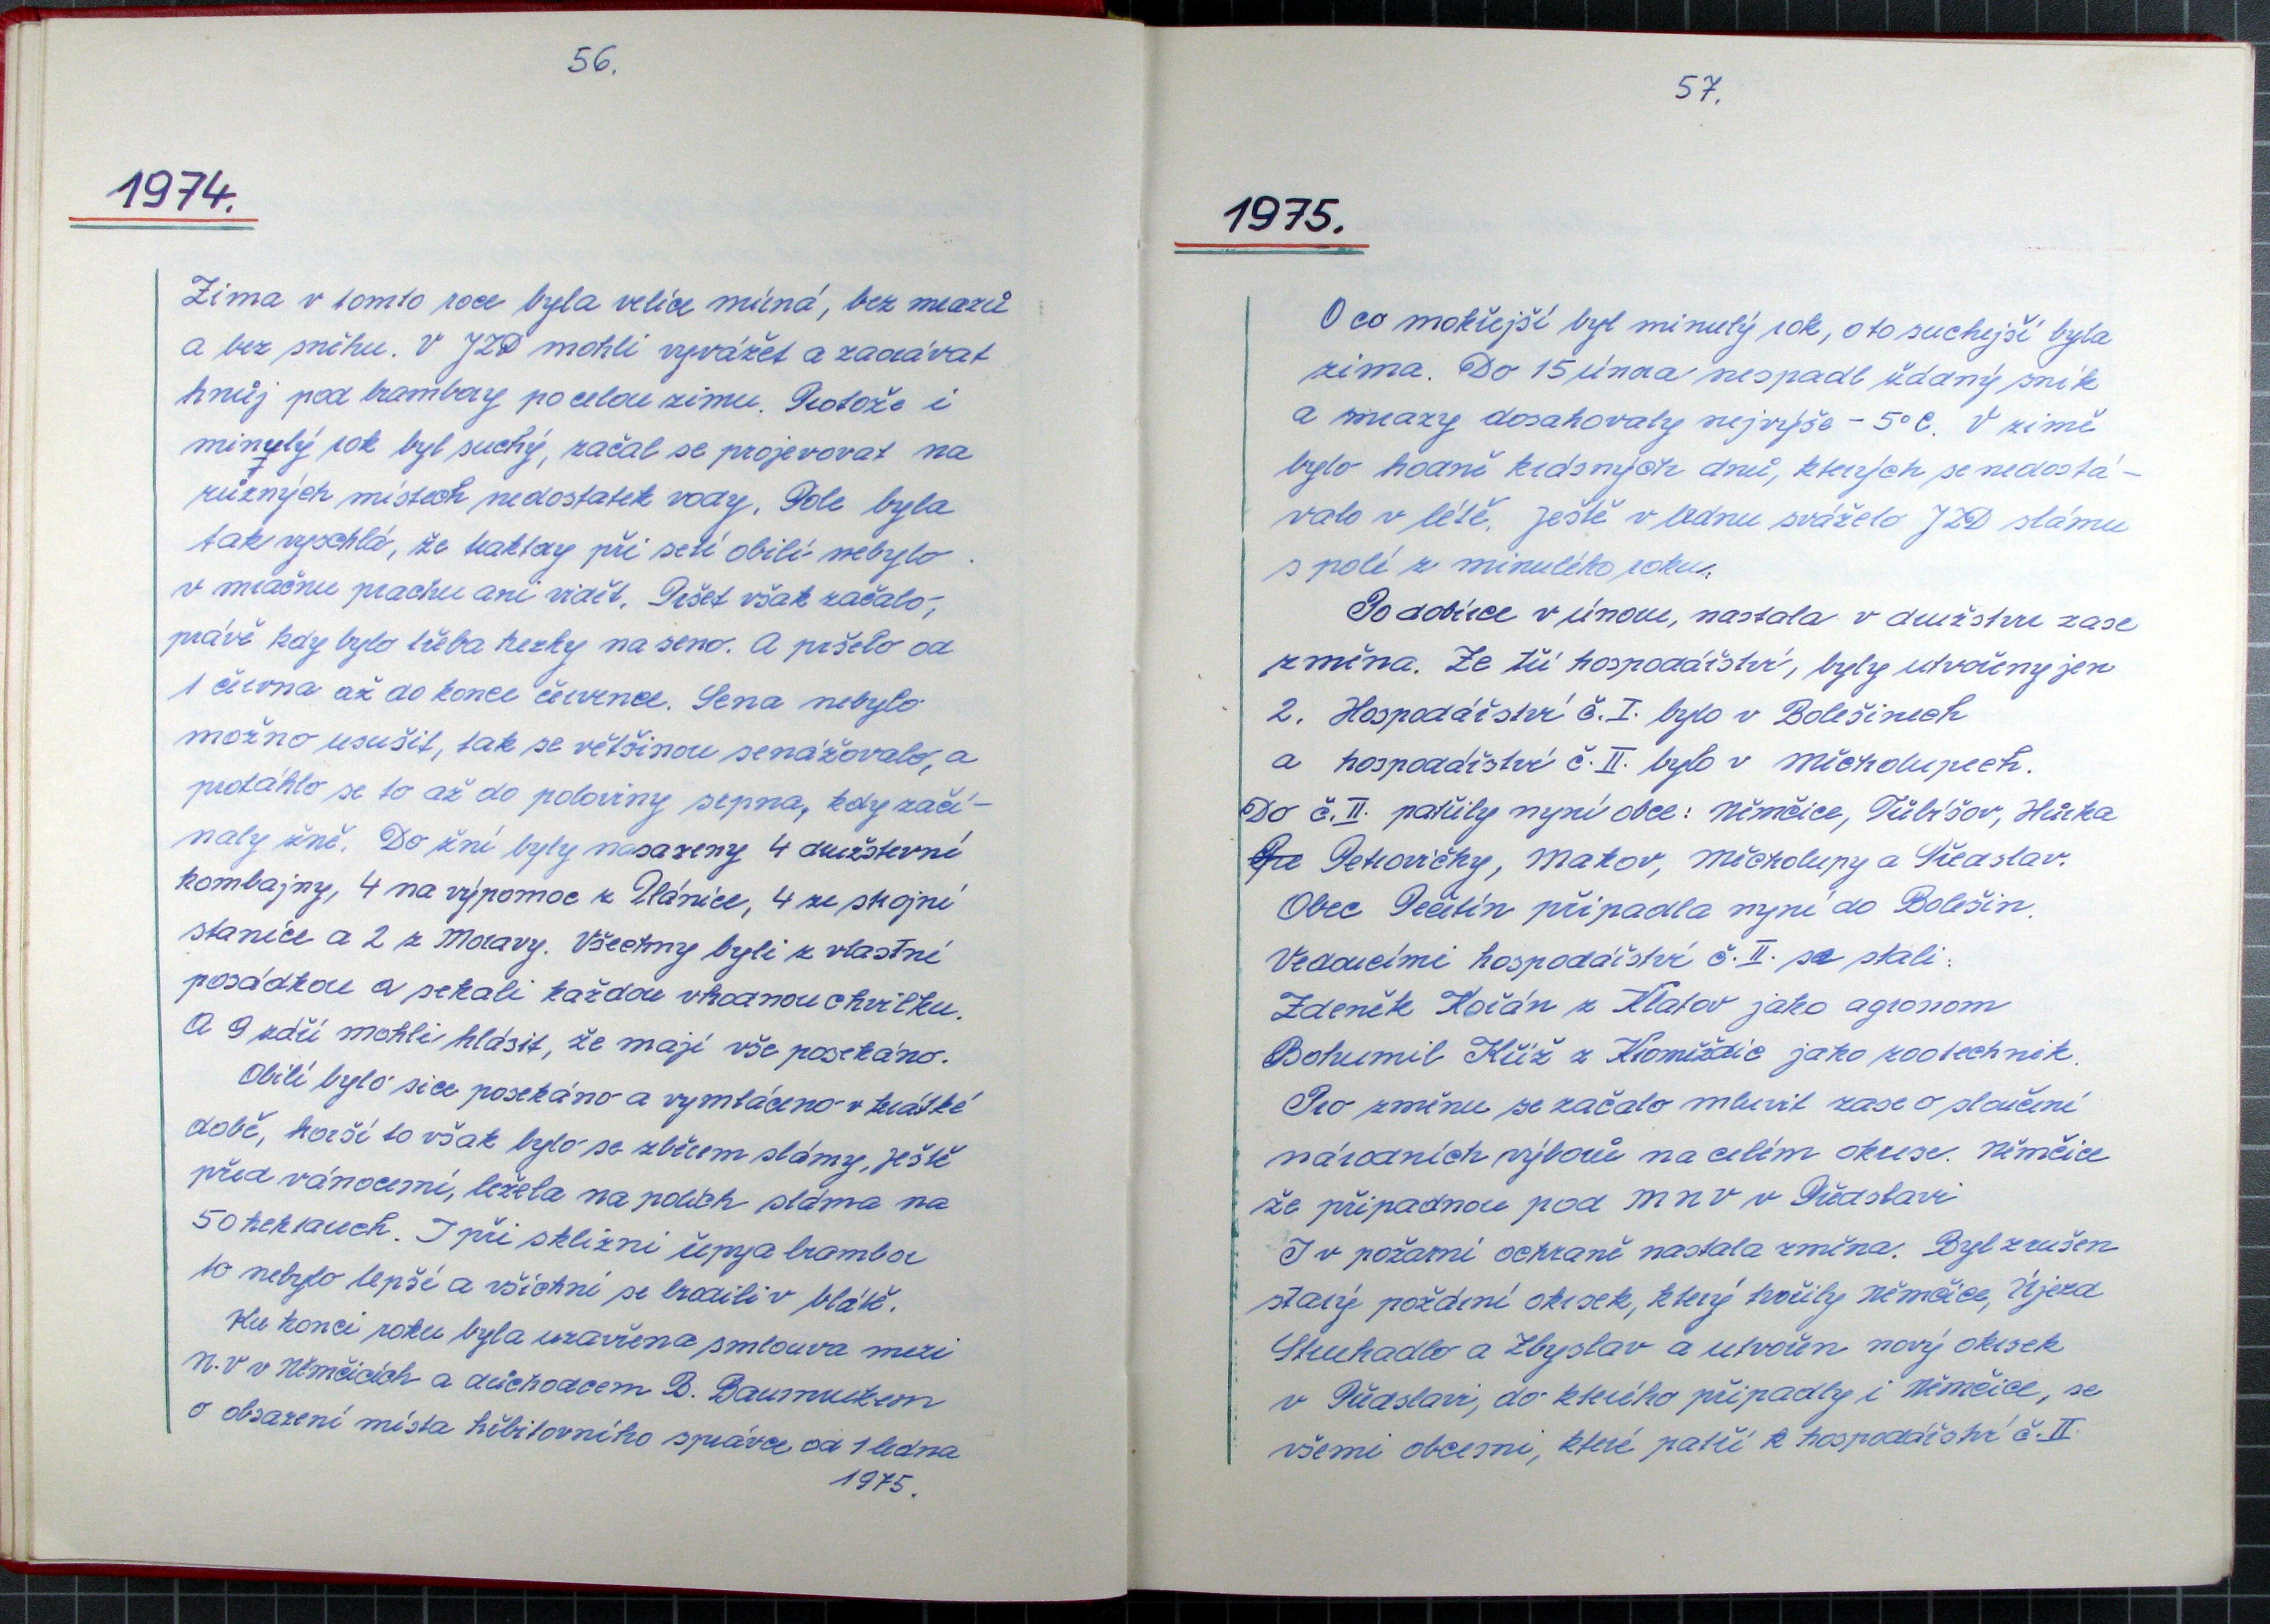 56.
1974.
Zima v tomto roce byla velice mírná, bez mrazů
a bez sněhu. V JZD mohli vyvážet a zaorávat
hnůj pod brambory po celou zimu. Protože i
minulý rok byl suchý, začal se projevovat na
různých místech nedostatek vody. Pole byla
tak vyschlá, že traktory při setí obilí nebylo
v mračnu prachu ani vidět. Pršet však začalo,
právě kdy bylo třeba hezky na seno. A pršelo od
1 června až do konce července. Sena nebylo
možno usušit, tak se většinou senážovalo, a
protáhlo se to až do poloviny srpna, kdy začí-
naly žně. Do žní byly nasazeny 4 družstevní
kombajny, 4 na výpomoc z Plánice, 4 ze strojní
stanice a 2 z Moravy. Všechny byli z vlastní
posádkou a sekali každou vhodnou chvilku.
A 9 září mohli hlásit, že mají vše posekáno.
Obilí bylo sice posekáno a vymláceno v krátké
době, horší to však bylo se zběrem slámy, ještě
před vánocemi, ležela na polích sláma na
50 hektarech. I při sklizni řepy a brambor
to nebylo lepší a všichni se brodili v blátě.
Ku konci roku byla uzavřena smlouva mezi
N.V v Němčicích a důchodcem B. Baumrukem
o obsazení místa hřbitovního správce od 1 ledna
1975.
57.
1975.
O co mokřejší byl minulý rok, o to suchejší byla
zima. Do 15 února nespadl žádný sníh
a mrazy dosahovaly nejvýše - 5°C. V zimě
bylo hodně krásných dnů, kterých se nedostá-
valo v létě. Ještě v lednu sváželo JZD slámu
s polí z minulého roku.
Po dobírce v únoru, nastala v družstvu zase
změna. Ze tří hospodářství, byly utvořeny jen
2. Hospodářství č. I. bylo v Bolešinech
a hospodářství č. II. bylo v Měcholupech.
Do č. II. patřily nyní obce: Němčice, Třebíšov, Hůrka
Petrovičky, Makov, Měcholupy a Předslav.
Obec Pečetín připadla nyní do Bolešin.
Vedoucími hospodářství č. II. se stali:
Zdeněk Hořán z Klatov jako agronom
Bohumil Kříž z Kroměždic jako zootechnik.
Pro změnu se začalo mluvit zase o sloučení
národních výborů na celém okrese. Němčice
že připadnou pod MNV v Předslavi
I v požární ochraně nastala změna. Byl zrušen
starý požární okrsek, který tvořily Němčice, Újezd
Struhadlo a Zbyslav a utvořen nový okrsek
v Předslavi, do kterého připadly i Němčice, se
všemi obcemi, které patří k hospodářství č. II.